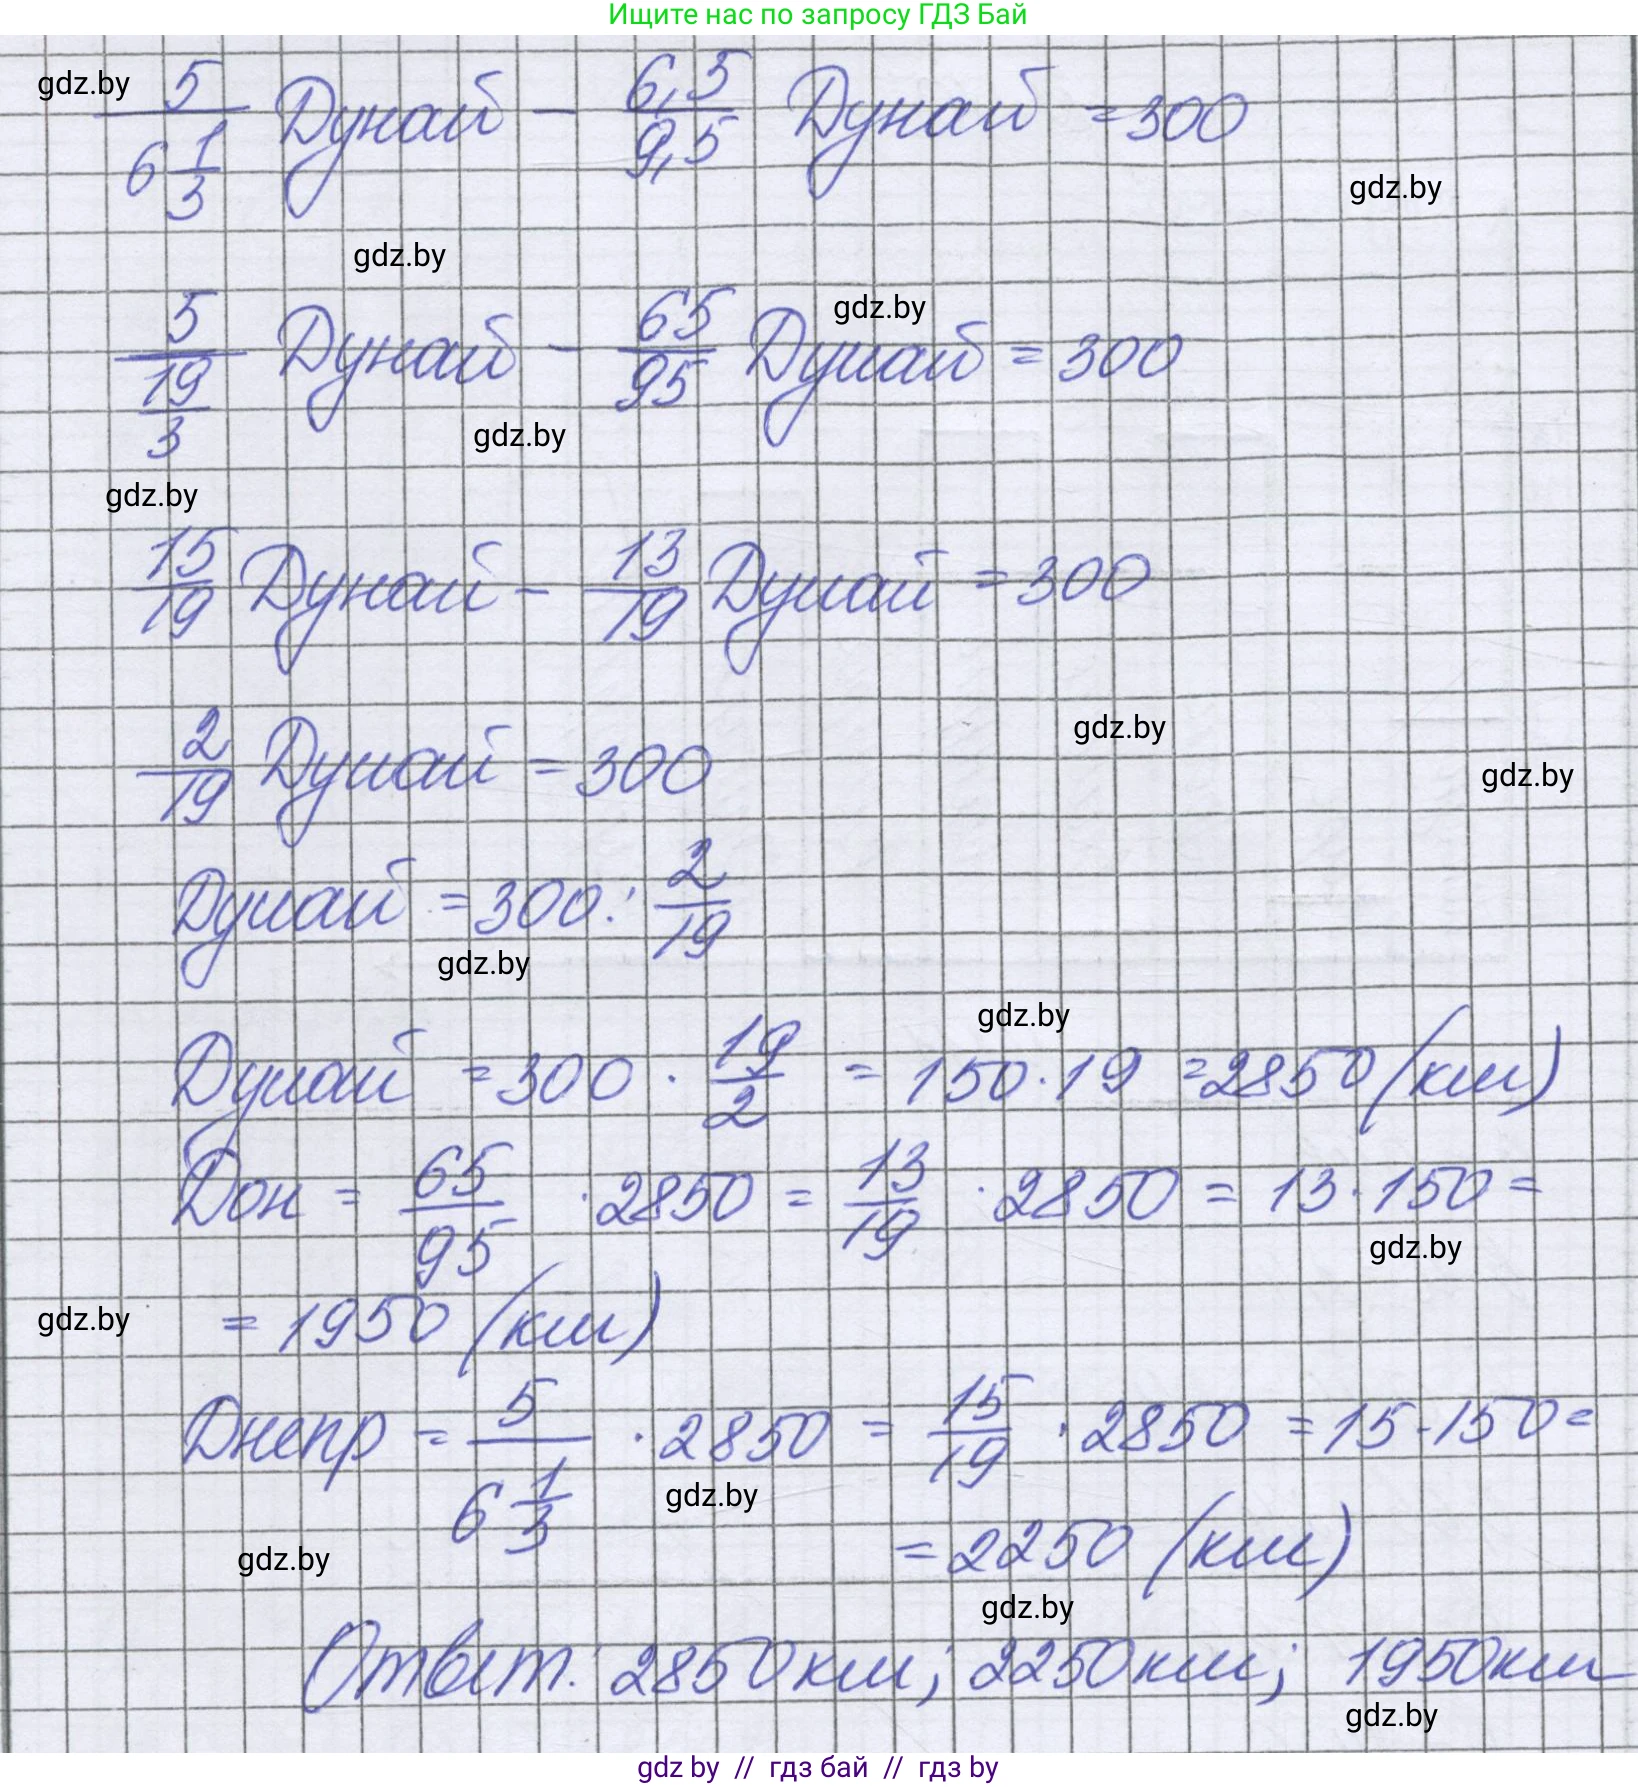 Ищите нас по запросу ГДЗ Бай
gdz.by
5/(6 1/3) Дунай - 6,5/9,5 Дунай = 300
gdz.by
gdz.by
gdz.by
5/(19/3) Дунай - 65/95 Дунай = 300
gdz.by
gdz.by
15/19 Дунай - 13/19 Дунай = 300
gdz.by
2/19 Дунай = 300
gdz.by
Дунай = 300 : 2/19
gdz.by
gdz.by
Дунай = 300 · 19/2 = 150 · 19 = 2850 (км)
Дон = 65/95 · 2850 = 13/19 · 2850 = 13 · 150 =
gdz.by
gdz.by
= 1950 (км)
Днепр = 5/(6 1/3) · 2850 = 15/19 · 2850 = 15 · 150 =
gdz.by
gdz.by
= 2250 (км)
gdz.by
Ответ: 2850 км; 2250 км; 1950 км
gdz.by
gdz by // гдз бай // гдз by